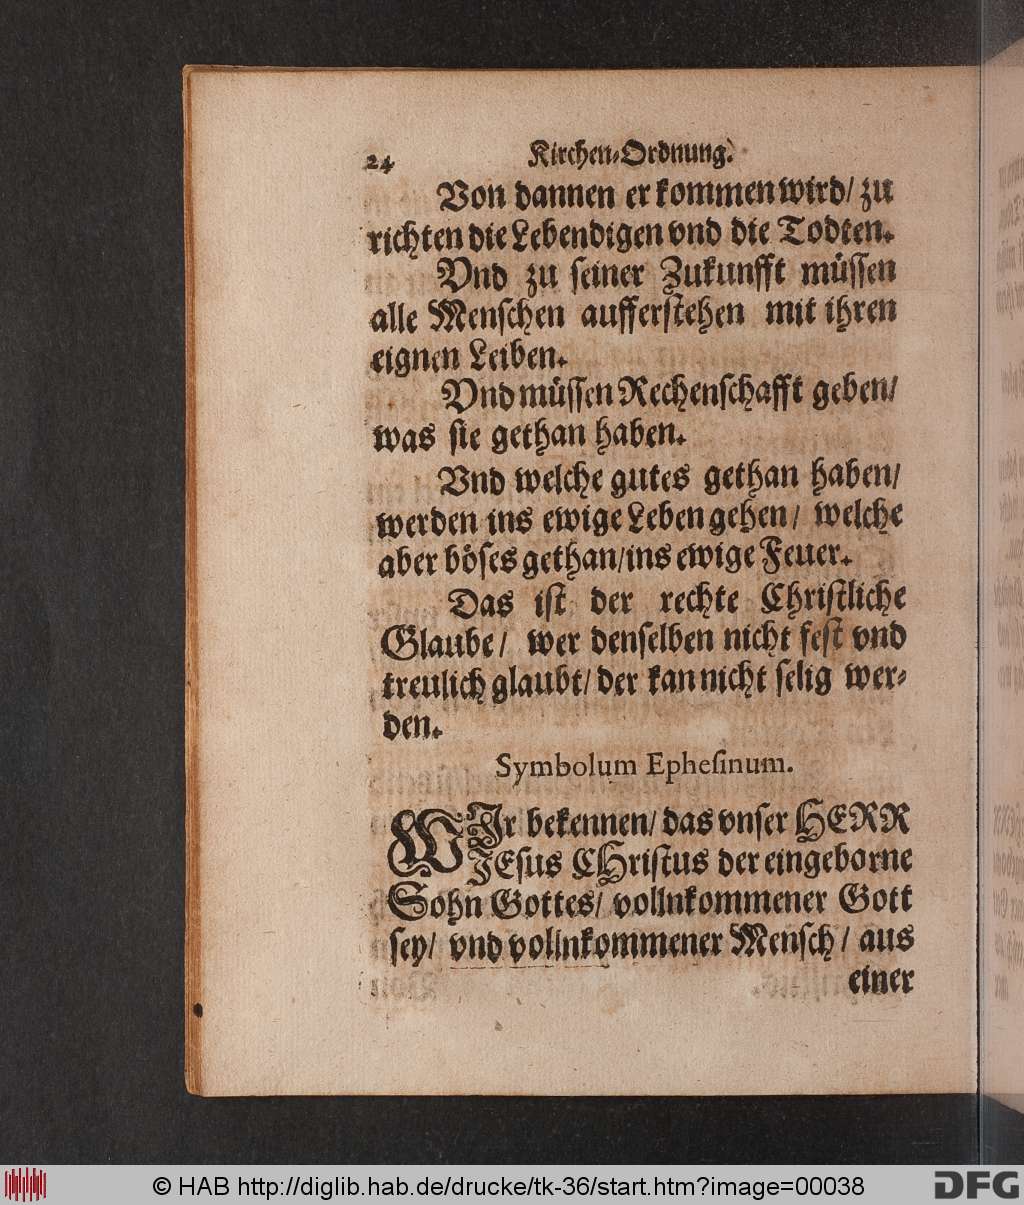 24 Kirchen-Ordnung.
Von dannen er kommen wird/ zu
richten die Lebendigen vnd die Todten.
Vnd zu seiner Zukunfft müssen
alle Menschen aufferstehen mit ihren
eignen Leiben.
Vnd müssen Rechenschafft geben/
was sie gethan haben.
Vnd welche gutes gethan haben/
werden ins ewige Leben gehen/ welche
aber böses gethan/ ins ewige Feuer.
Das ist der rechte Christliche
Glaube/ wer denselben nicht fest vnd
treulich glaubt/ der kan nicht selig wer-
den.
Symbolum Ephesinum.
WIr bekennen/ das vnser HERR
JEsus CHristus der eingeborne
Sohn Gottes/ vollnkommener Gott
sey/ vnd vollnkommener Mensch/ aus
einer
© HAB http://diglib.hab.de/drucke/tk-36/start.htm?image=00038
DFG